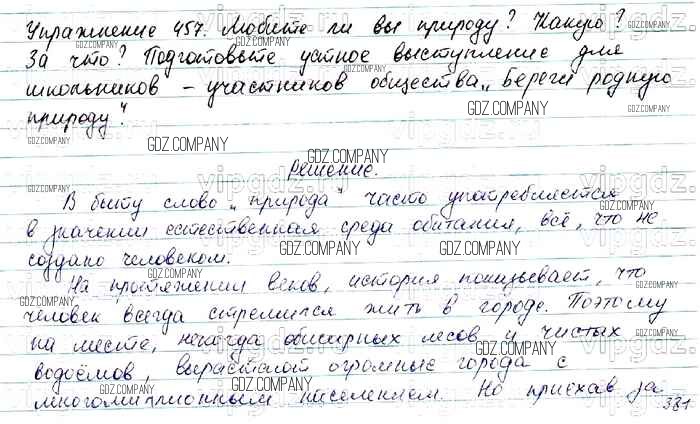 Упражнение 457. Любите ли вы природу? Какую?
За что? Подготовьте устное выступление для
школьников – участников общества „Береги родную
природу".
Решение.
В быту слово „природа" часто употребляется
в значении естественная среда обитания, всё, что не
создано человеком.
На протяжении веков, история показывает, что
человек всегда стремился жить в городе. Поэтому
на месте, некогда обширных лесов и чистых
водоёмов, вырастают огромные города с
многомиллионным населением. Но приехав за
381
GDZ.COMPANY
vipgdz.ru